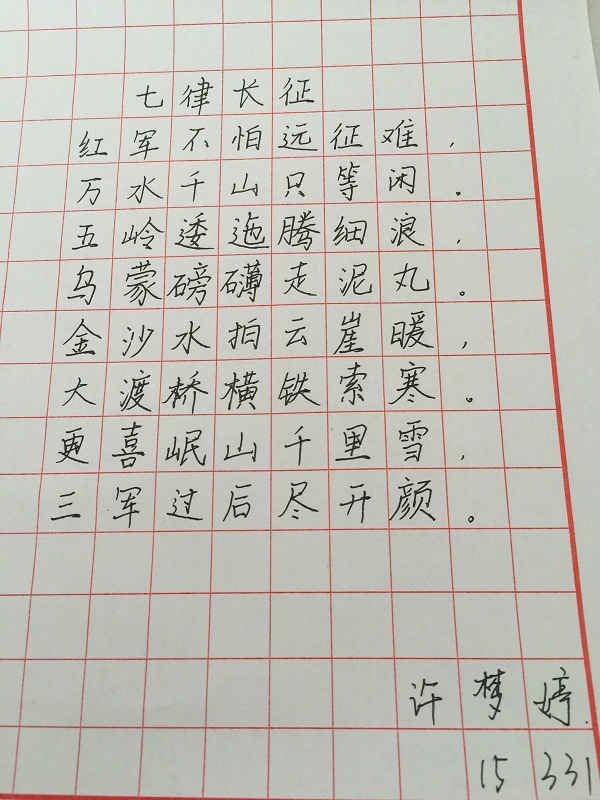 七律长征
红军不怕远征难，
万水千山只等闲。
五岭逶迤腾细浪，
乌蒙磅礴走泥丸。
金沙水拍云崖暖，
大渡桥横铁索寒。
更喜岷山千里雪，
三军过后尽开颜。
许梦婷.
15 331